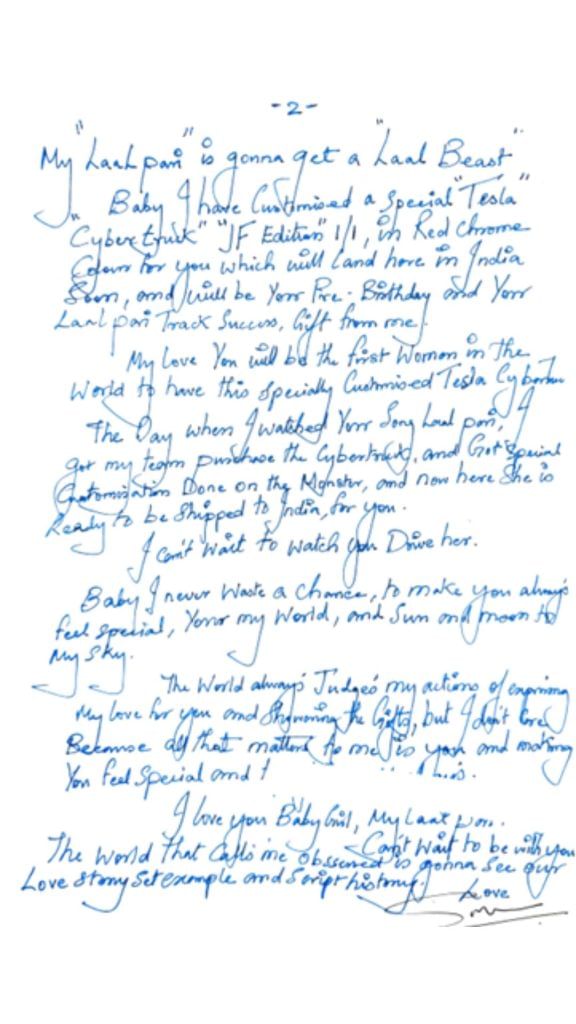 -2-
My "Laal pari" is gonna get a "Laal Beast"
Baby I have Customised a Special "Tesla"
"Cybertruck" "JF Edition" 1/1, in Red Chrome
Colour for you which will Land here in India
Soon, and will be Your Pre-Birthday and Your
Laal pari Track Success, Gift from me.
My Love You will be the first Woman in The
World to have this specially Customised Tesla
The Day when I watched Your Song Laal pari, I
got my team purchase the Cybertruck, and Got Special
Customization Done on the Monster, and now here She is
Ready to be Shipped to India, for you.
I can't Wait to watch you Drive her.
Baby I never Waste a Chance, to make you always
feel special, Your my World, and Sun and moon to
My Sky.
The World always Judges my actions of expressing
My Love for you and Showering the Gifts, but I don't Care
Because all that matters to me is you and making
You feel Special and
I love you Baby Girl, My Laal pari.
Can't Wait to be with you
The World That Calls me obsessed is gonna See our
Love Story Set example and Script history.
Love